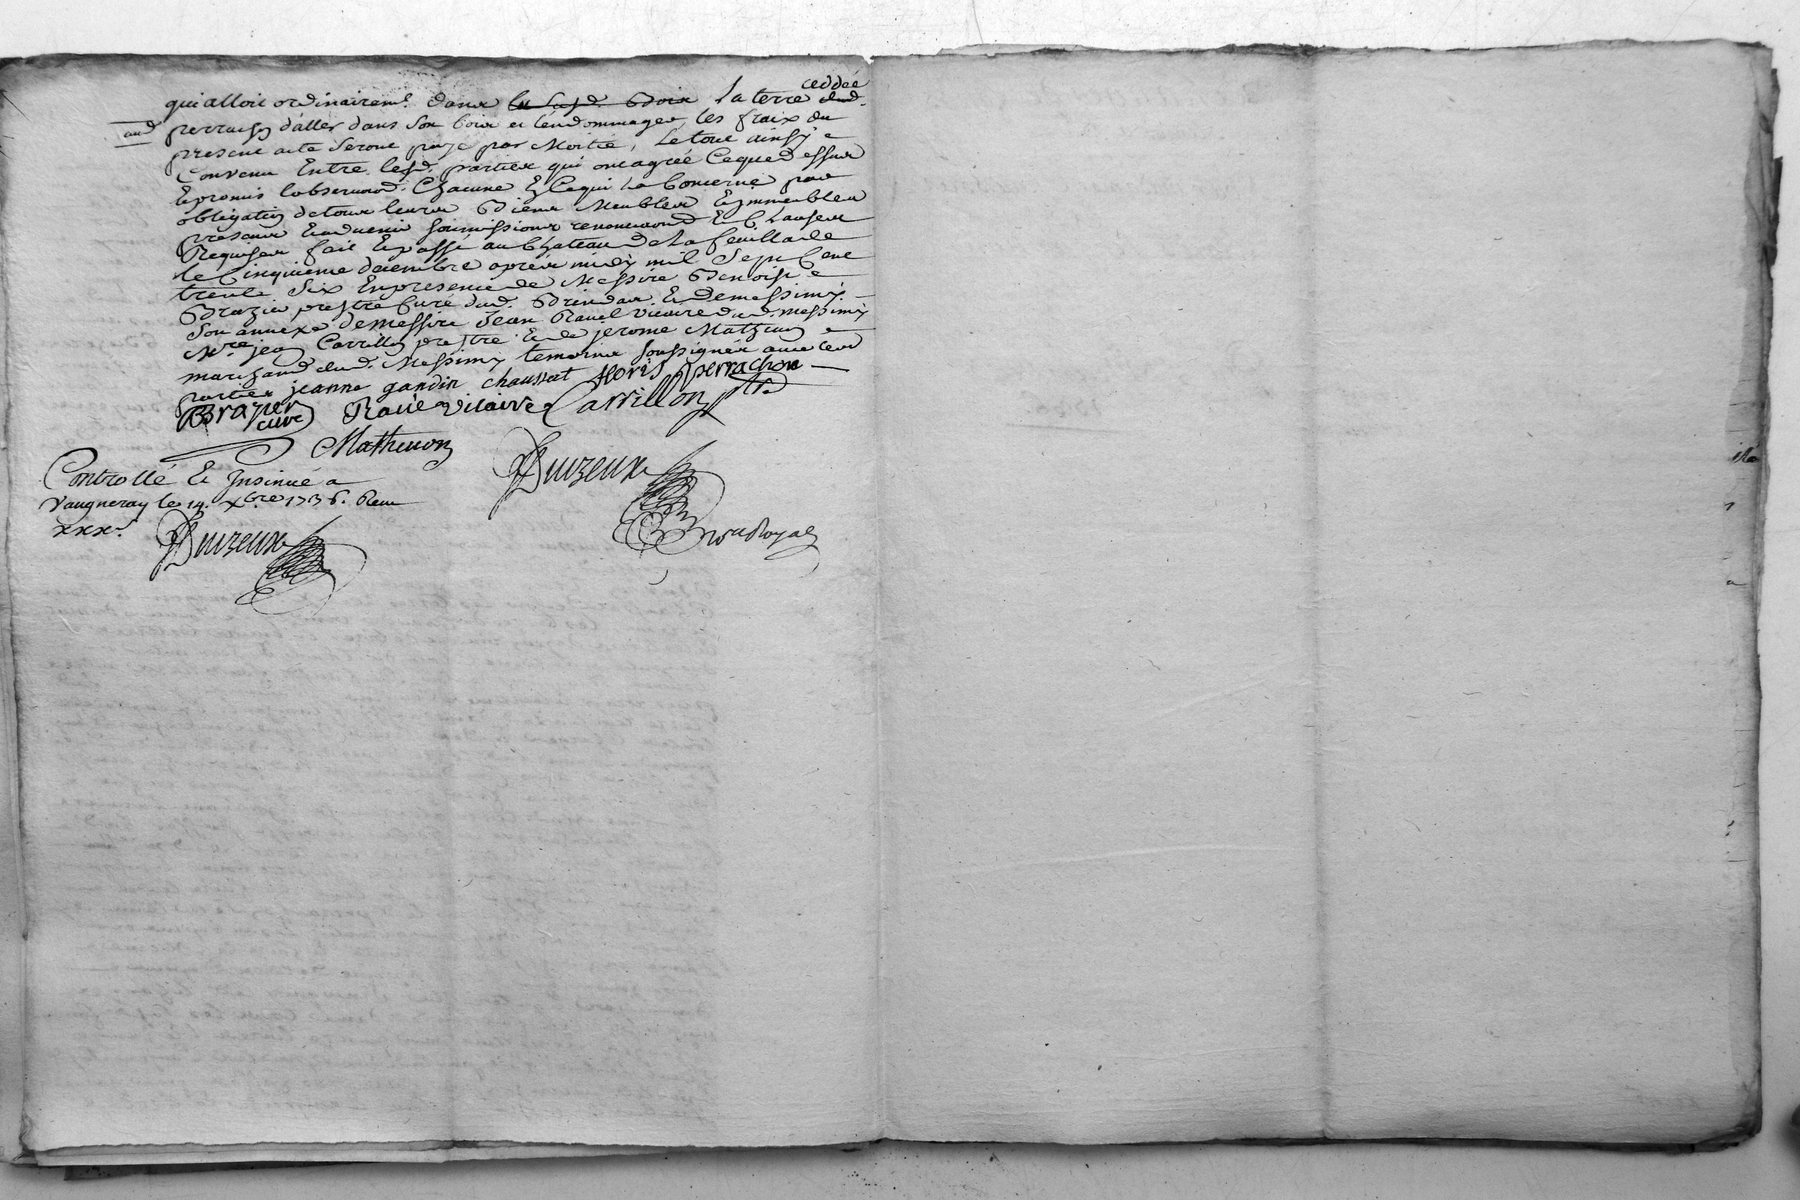 ceddée
qui alloit ordinairemt. dans la terre
aud perrachon d'aller dans son bois et l'endommager, les fraix du
present acte seront payé par Moitié, Le tout ainsy
Convenu Entre lesd. parties qui ont agréé Ceque dessus
Et promis l'observer Chacune En Ce qui la Concerne par
obligation de tous leurs Biens Meubles Et immeubles
presents Et advenir soumissions renonciaons Et Clauses
Requises fait Et passé au Chateau de La feuillade
le Cinquieme decembre après midy mil Sept Cent
trente Six En presence de Messire Benoist
Brazier prestre Curé dud. Brindas Et de messimy
son annexe de messire Jean Ravel vicaire dud. messimy
Mre. jean Carrillon prestre Et de jerome Mathevon
marchand dud. Messimy temoins soussignés avec les
parties jeanne gandin chaussat floris perrachon
Brazier curé Ravel vicaire Carrillon ptre
Mathevon
Controllé Et Insinué a
Vaugneray le 14. Xbre 1736. Reçu
xxxs.